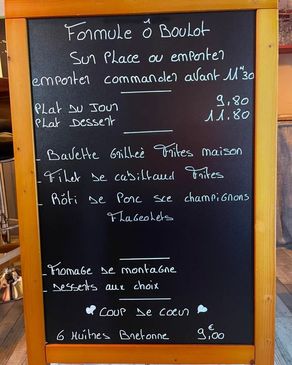 Formule Ô Boulot
Sur Place ou emporter
emporter commander avant 11H30
Plat du Jour 9,80
Plat Dessert 11,80
- Bavette Grilleè Frites maison
- Filet de cabillaud Frites
- Rôti de Porc sce champignons
Flageolets
- Fromage de montagne
- Desserts aux choix
Coup de coeur
6 Huîtres Bretonne 9,00 €